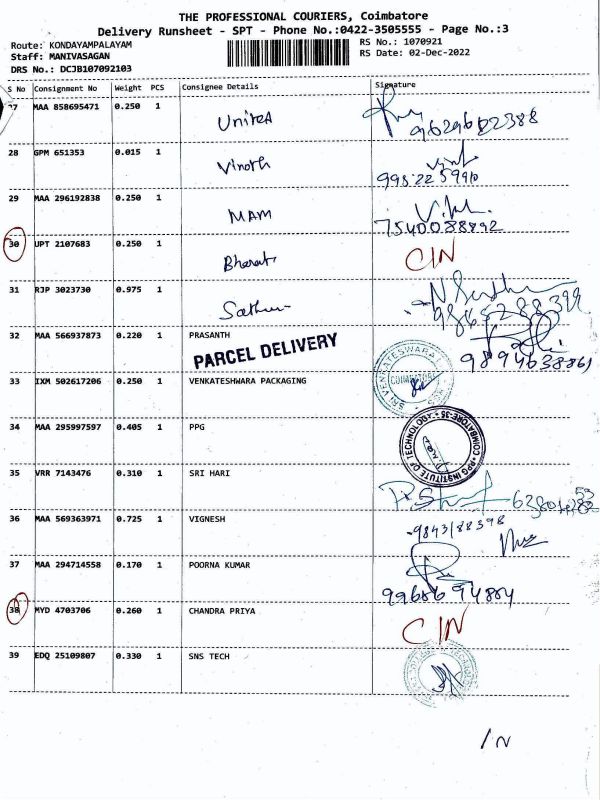 THE PROFESSIONAL COURIERS, Coimbatore
Delivery Runsheet - SPT - Phone No.:0422-3505555 - Page No.:3
Route: KONDAYAMPALAYAM RS No.: 1070921
Staff: MANIVASAGAN RS Date: 02-Dec-2022
DRS No.: DCJB107092103
S No Consignment No Weight PCS Consignee Details Signature
27 MAA 858695471 0.250 1 United
28 GPM 651353 0.015 1 Vinoth
29 MAA 296192838 0.250 1 MAM
7540088892
30 UPT 2107683 0.250 1 Bharat CIN
31 RJP 3023730 0.975 1
32 MAA 566937873 0.220 1 PRASANTH
PARCEL DELIVERY
9894638861
33 IXM 502617206 0.250 1 VENKATESHWARA PACKAGING
SRI VENKATESWARA
COIMBATORE
34 MAA 295997597 0.405 1 PPG
PPG INSTITUTE OF TECHNOLOGY COIMBATORE-35
35 VRR 7143476 0.310 1 SRI HARI
36 MAA 569363971 0.725 1 VIGNESH
9843188398
37 MAA 294714558 0.170 1 POORNA KUMAR
38 MYD 4703706 0.260 1 CHANDRA PRIYA CIN
39 EDQ 25109807 0.330 1 SNS TECH